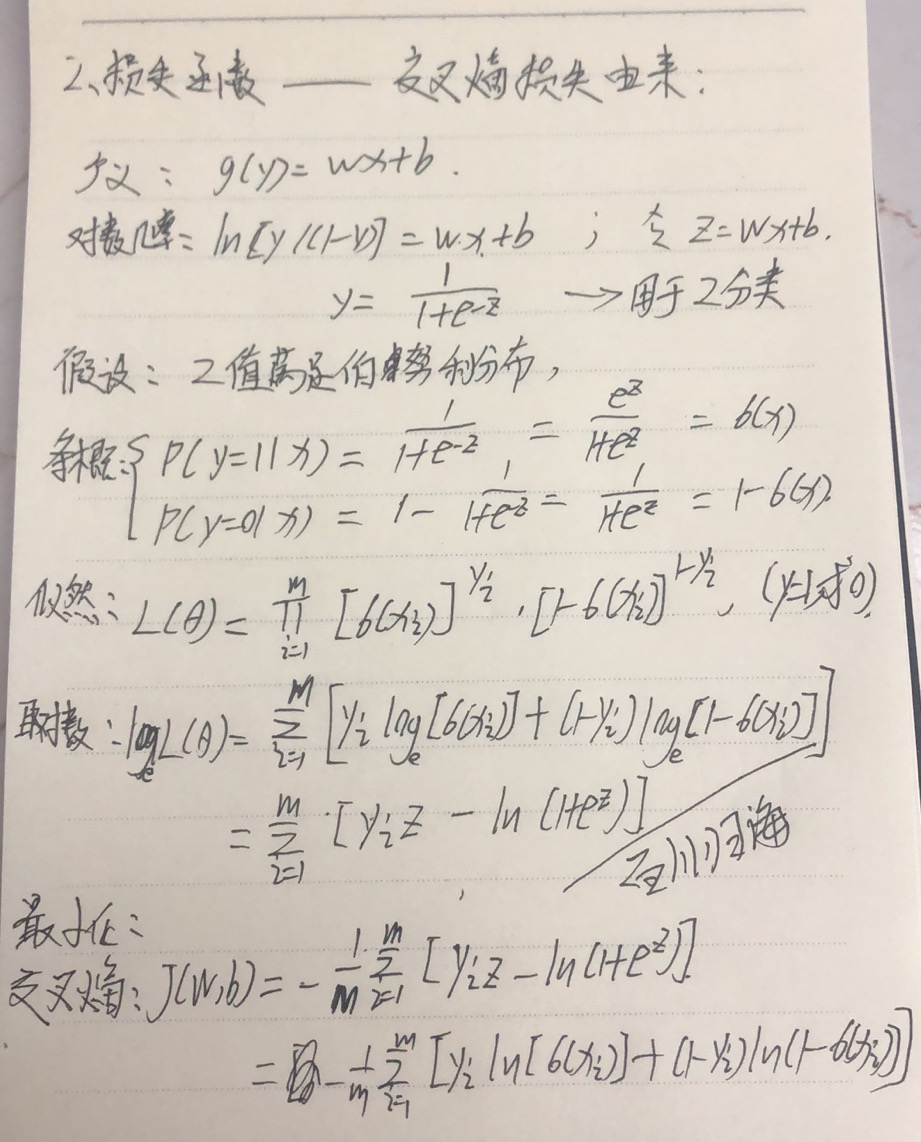 2、损失函数 —— 交叉熵损失由来：
广义： g(y)= wx+b .
对数几率： ln[y/(1-y)] = w.x+b ； 令 z=wx+b.
y= 1/(1+e^-z) → 用于2分类
假设： 2值满足伯努利分布，
条概：{ P(y=1|x) = 1/(1+e^-z) = e^z/(1+e^z) = б(x)
P(y=0|x) = 1- 1/(1+e^-z) = 1/(1+e^z) = 1-б(x).
似然： L(θ) = ∏_{i=1}^{m} [б(xi)]^{yi} · [1-б(xi)]^{1-yi}, (y=1或0).
取对数：log_e L(θ)= Σ_{i=1}^{m} [yi log_e[б(xi)] + (1-yi) log_e[1-б(xi)]]
= Σ_{i=1}^{m} [yi z - ln(1+e^z)]
最小化：
交叉熵：J(w,b) = - 1/m Σ_{i=1}^{m} [yi z - ln(1+e^z)]
= - 1/m Σ_{i=1}^{m} [yi ln[б(xi)] + (1-yi) ln(1-б(xi))]